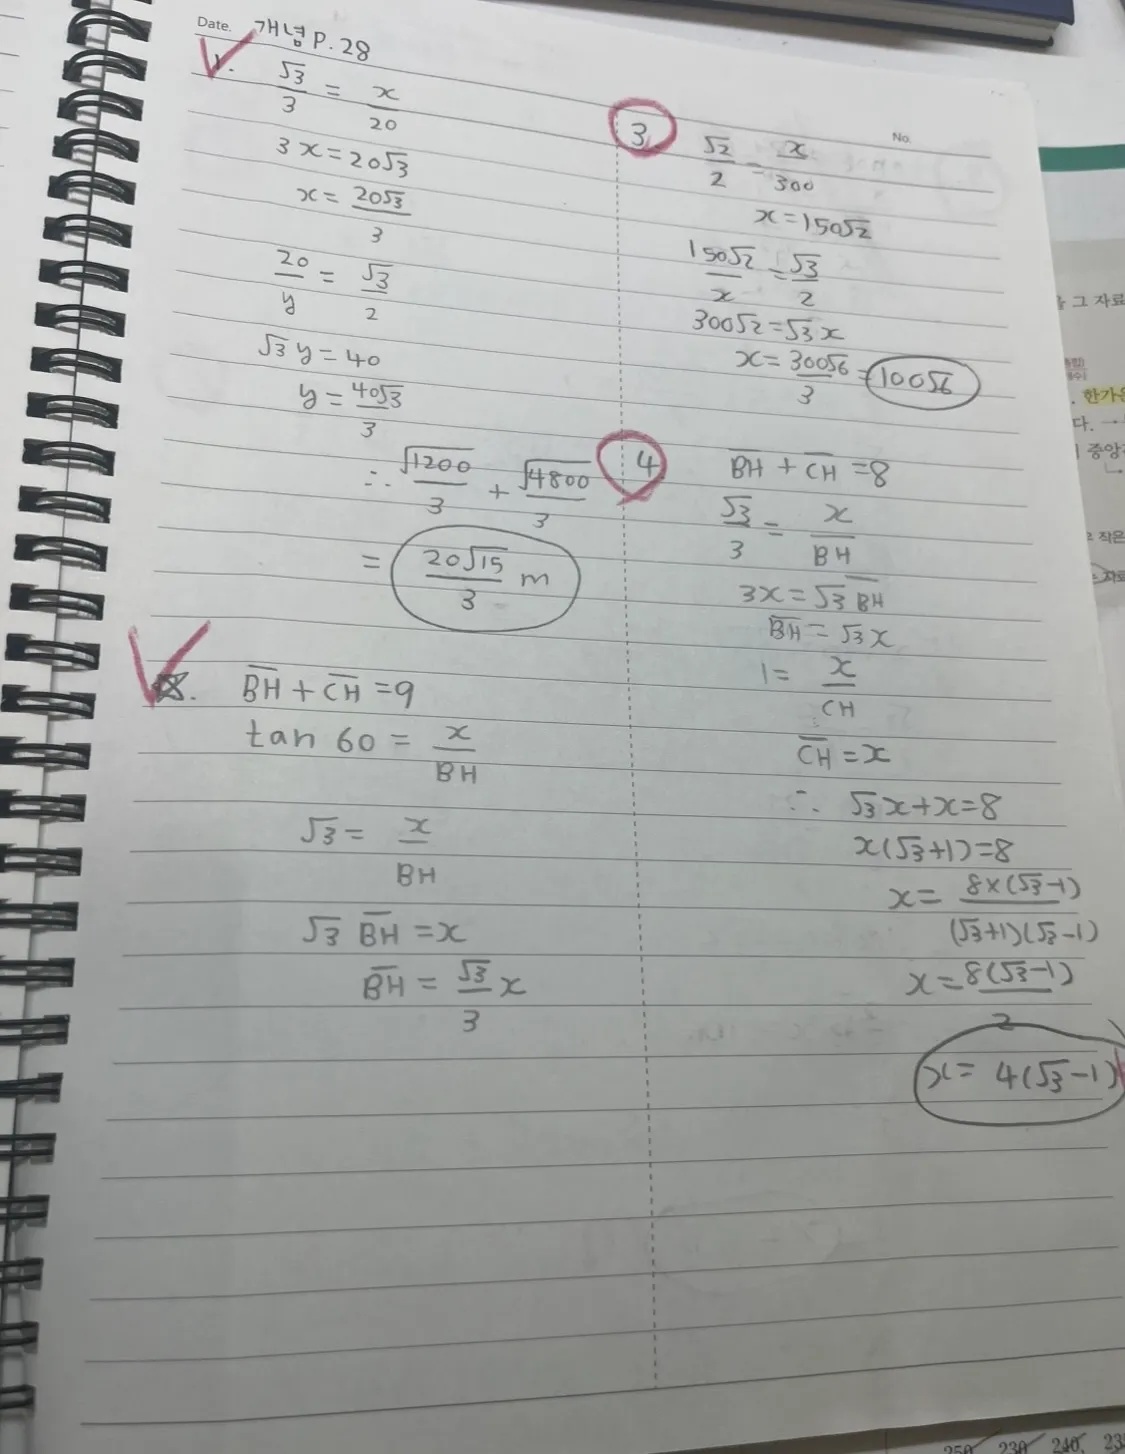 Date. 개념 P. 28
1. √3/3 = x/20
3x=20√3
x=20√3/3
20/y = √3/2
√3y=40
y=40√3/3
∴ √1200/3 + √4800/3
= 20√15/3 m
8. BH+CH=9
tan 60 = x/BH
√3= x/BH
√3 BH=x
BH= √3/3 x
No.
3 √2/2 = x/300
x=150√2
150√2/x = √3/2
300√2=√3x
x=300√6/3=100√6
4 BH+CH=8
√3/3 = x/BH
3x=√3BH
BH=√3x
1= x/CH
CH=x
∴ √3x+x=8
x(√3+1)=8
x= 8×(√3-1)/(√3+1)(√3-1)
x=8(√3-1)/2
x= 4(√3-1)
그 자료
한가운
다.
중앙
작은
250 230 240, 23